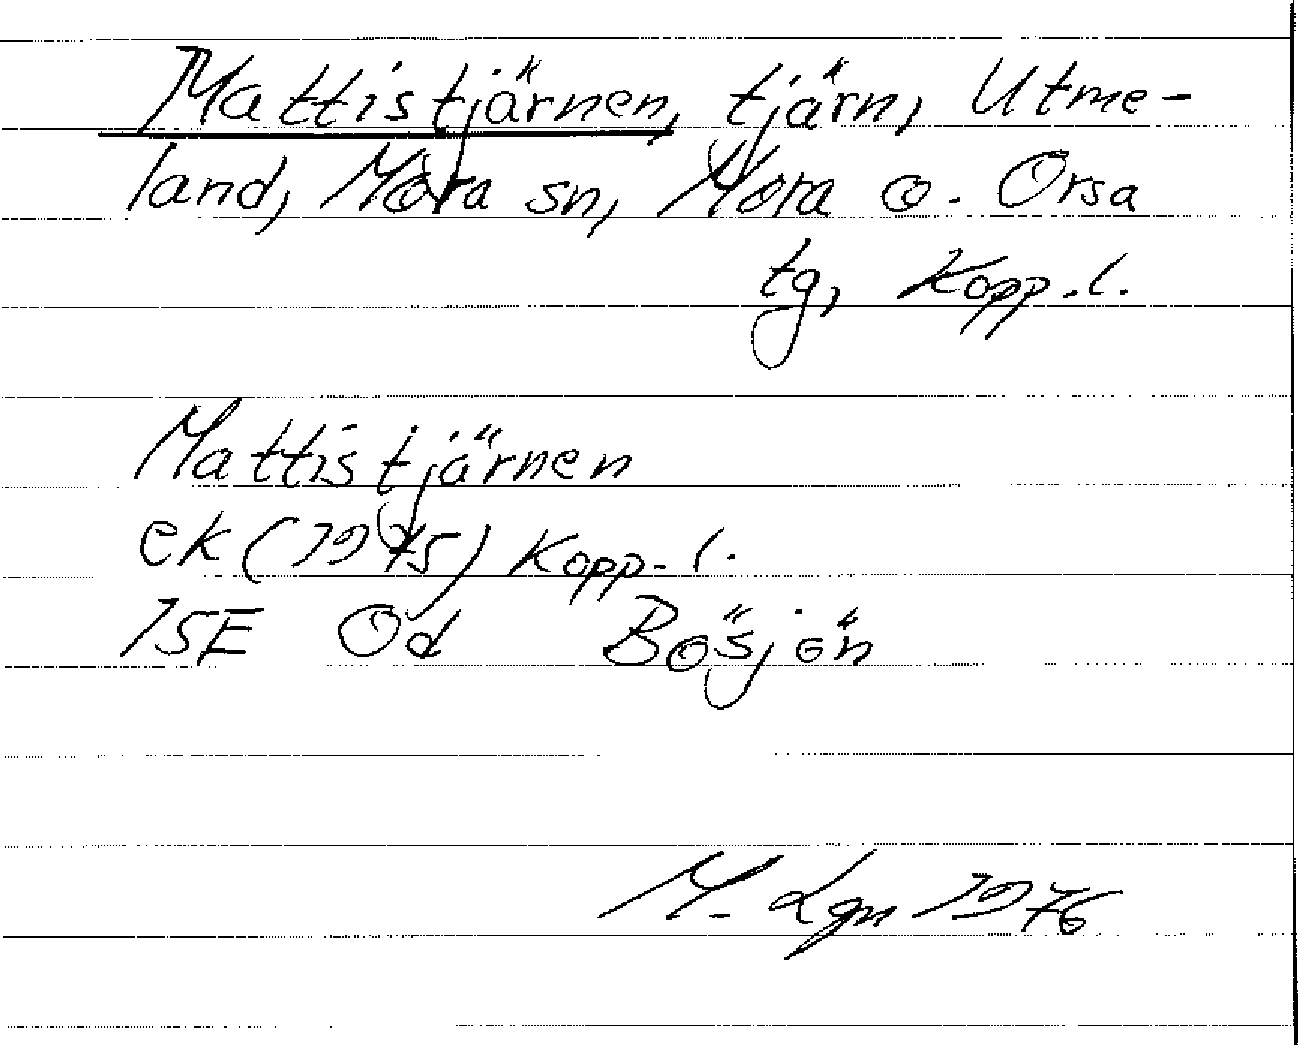 Mattistjärnen, tjärn, Utme-
land, Mora sn, Mora o. Orsa
tg, Kopp.l.
Mattistjärnen
ek (1975) Kopp.l.
15E Od Bösjön
M. Lgn 1976